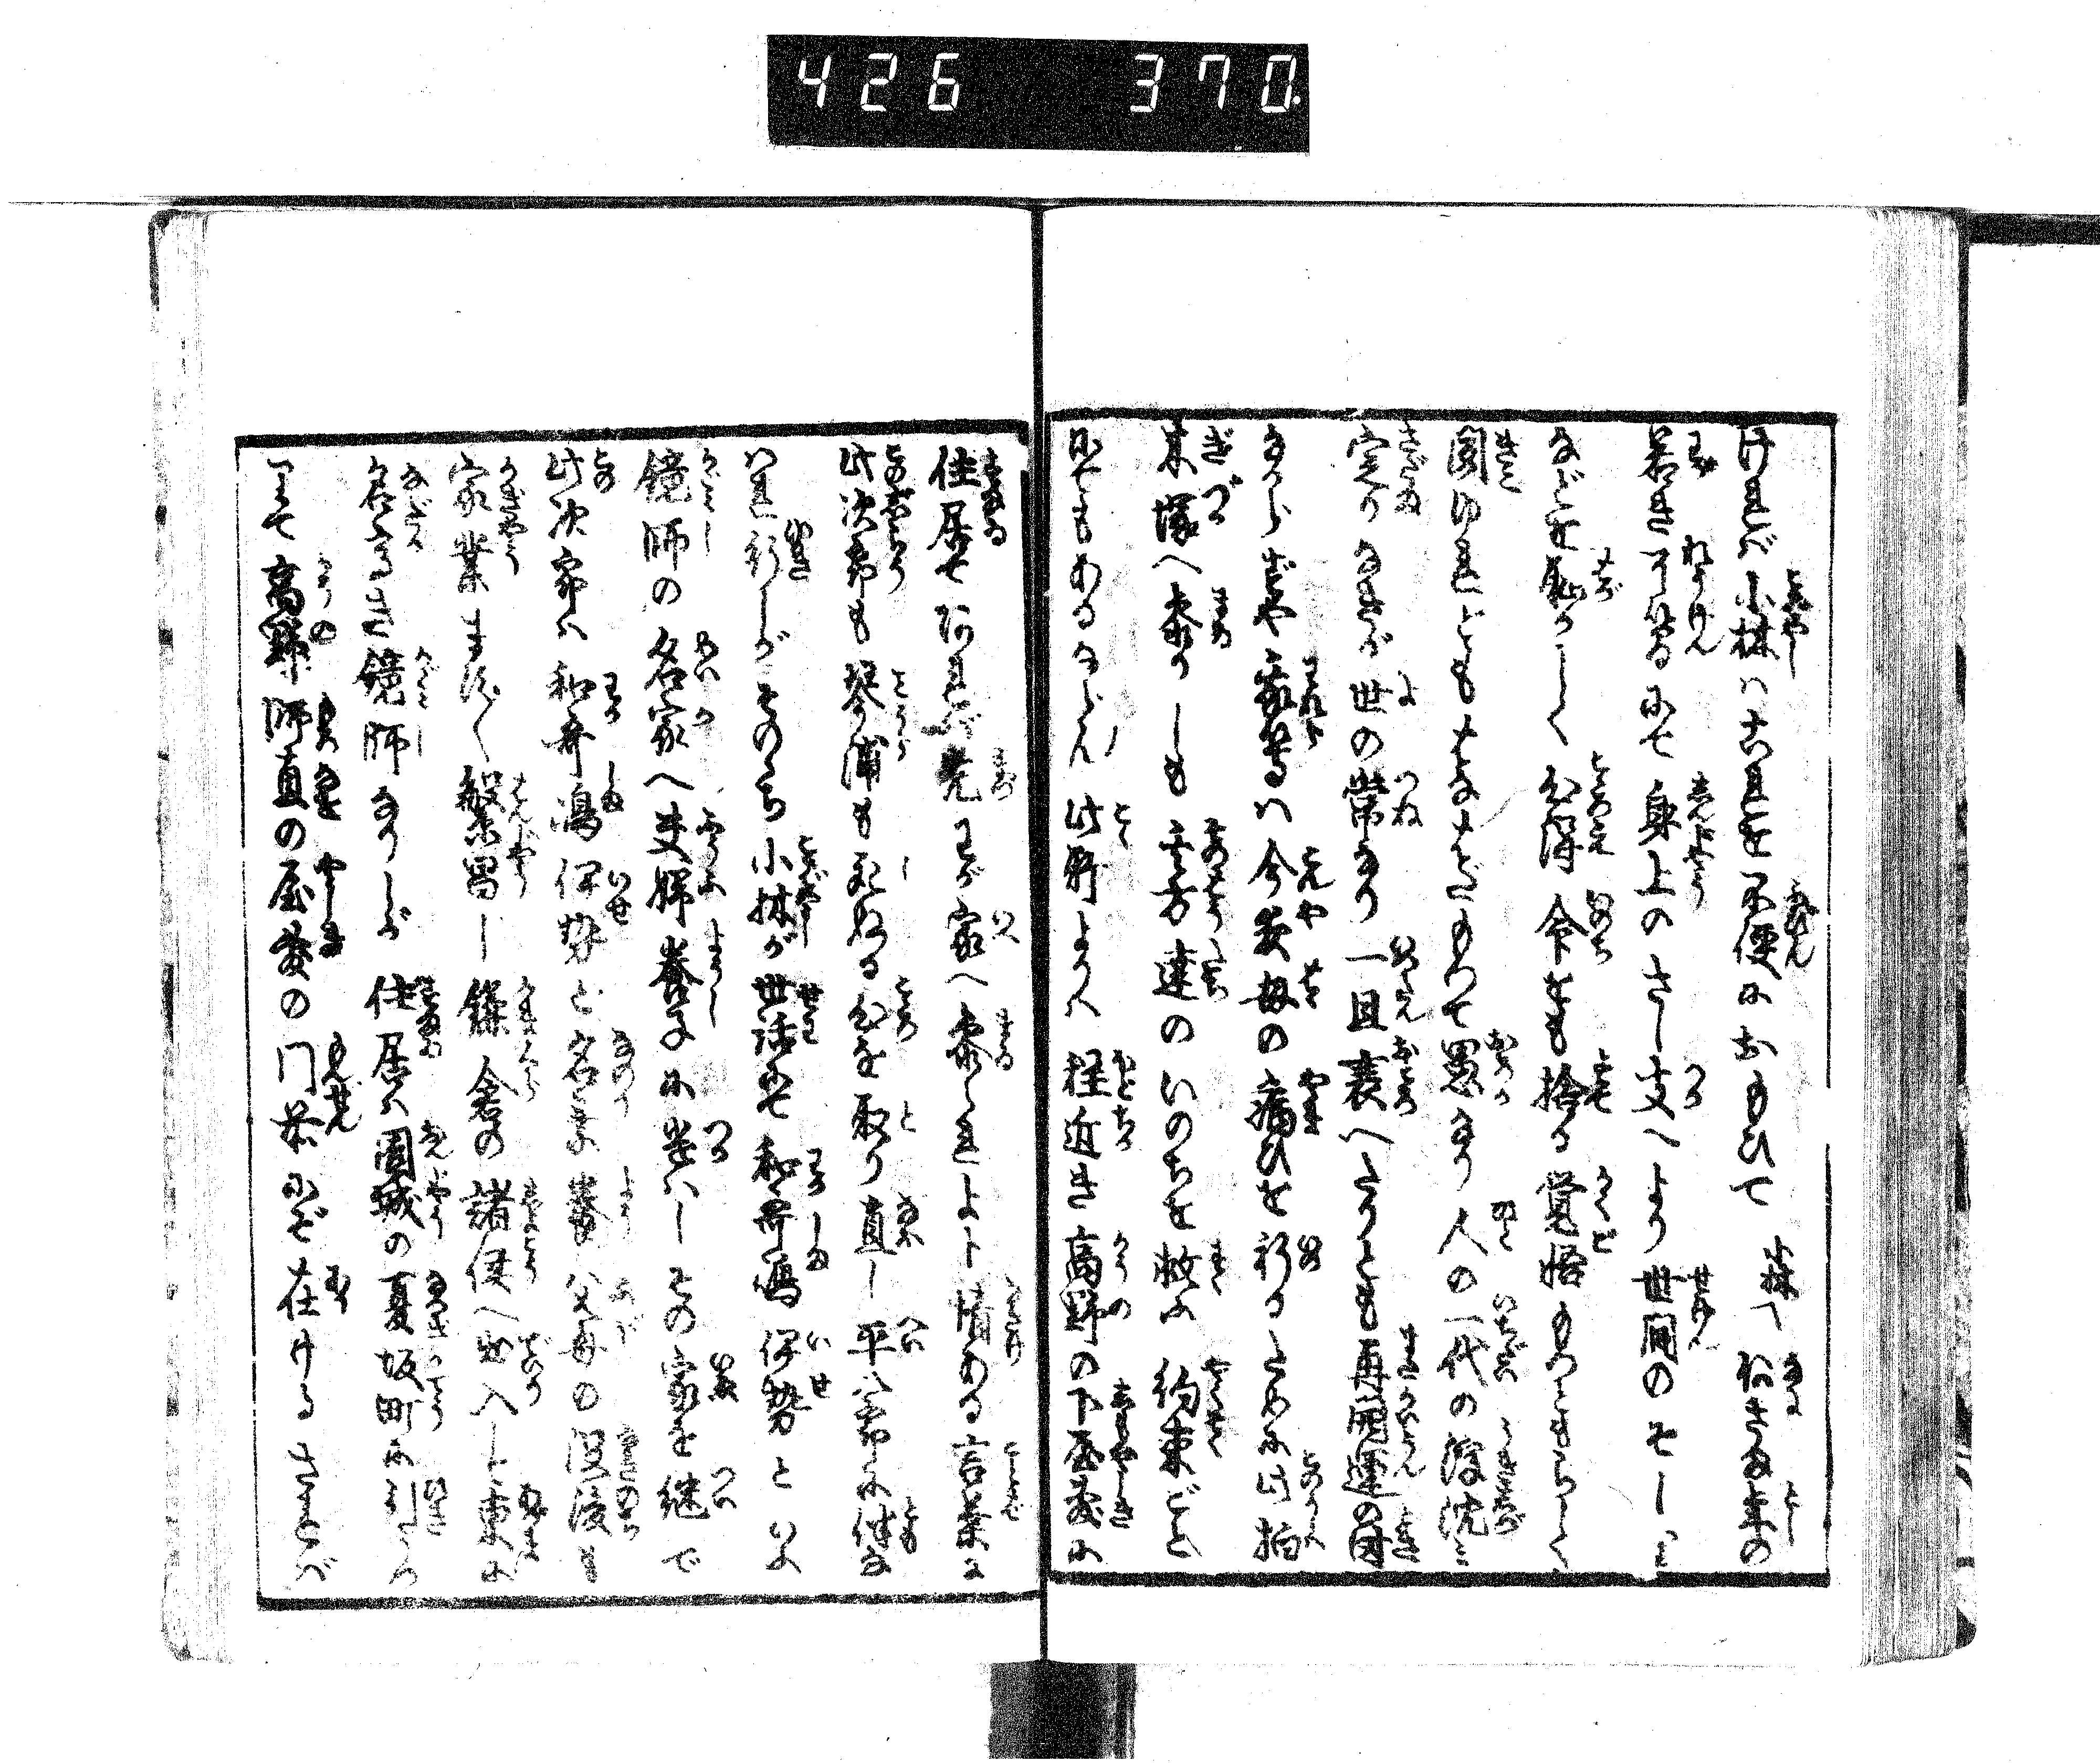 426 370
けれバ小林ハこれを不便におもひて 小林「おまへ達の
若き了簡にて身上のさし支へより世間のそしり
などを恥かしく心得命をも捨る覚悟もつともらしく
聞ゆれどもはなはだもつて愚なり人の一代の浮沈ミ
定りなきが世の常なり一旦衰へたりとも再開運の時
なからずや我等ハ今夜母の病ひを祈るために此柏
木塚へ参りしも其方達のいのちを救ふ約束ごと
にてもあるならん此所よりハ程近き高野の下屋敷に
住居てあれバ先わが家へ参られよト情ある言葉に
此次郎も琴浦も死ぬる心を取り直し平八郎に伴な
はれ行しがそのゝち小林が世話にて和哥嶋伊勢といふ
鏡師の名家へ夫婦養子に遣ハしその家を継で
此次郎ハ和哥嶋伊勢と名乗養父母の没後も
家業ます〳〵繁昌し鎌倉の諸侯へ出入し東に
名高き鏡師なりしが住居ハ圓城の夏坂町に引うつ
りて高野師直の屋敷の門前にぞ在けるされバ